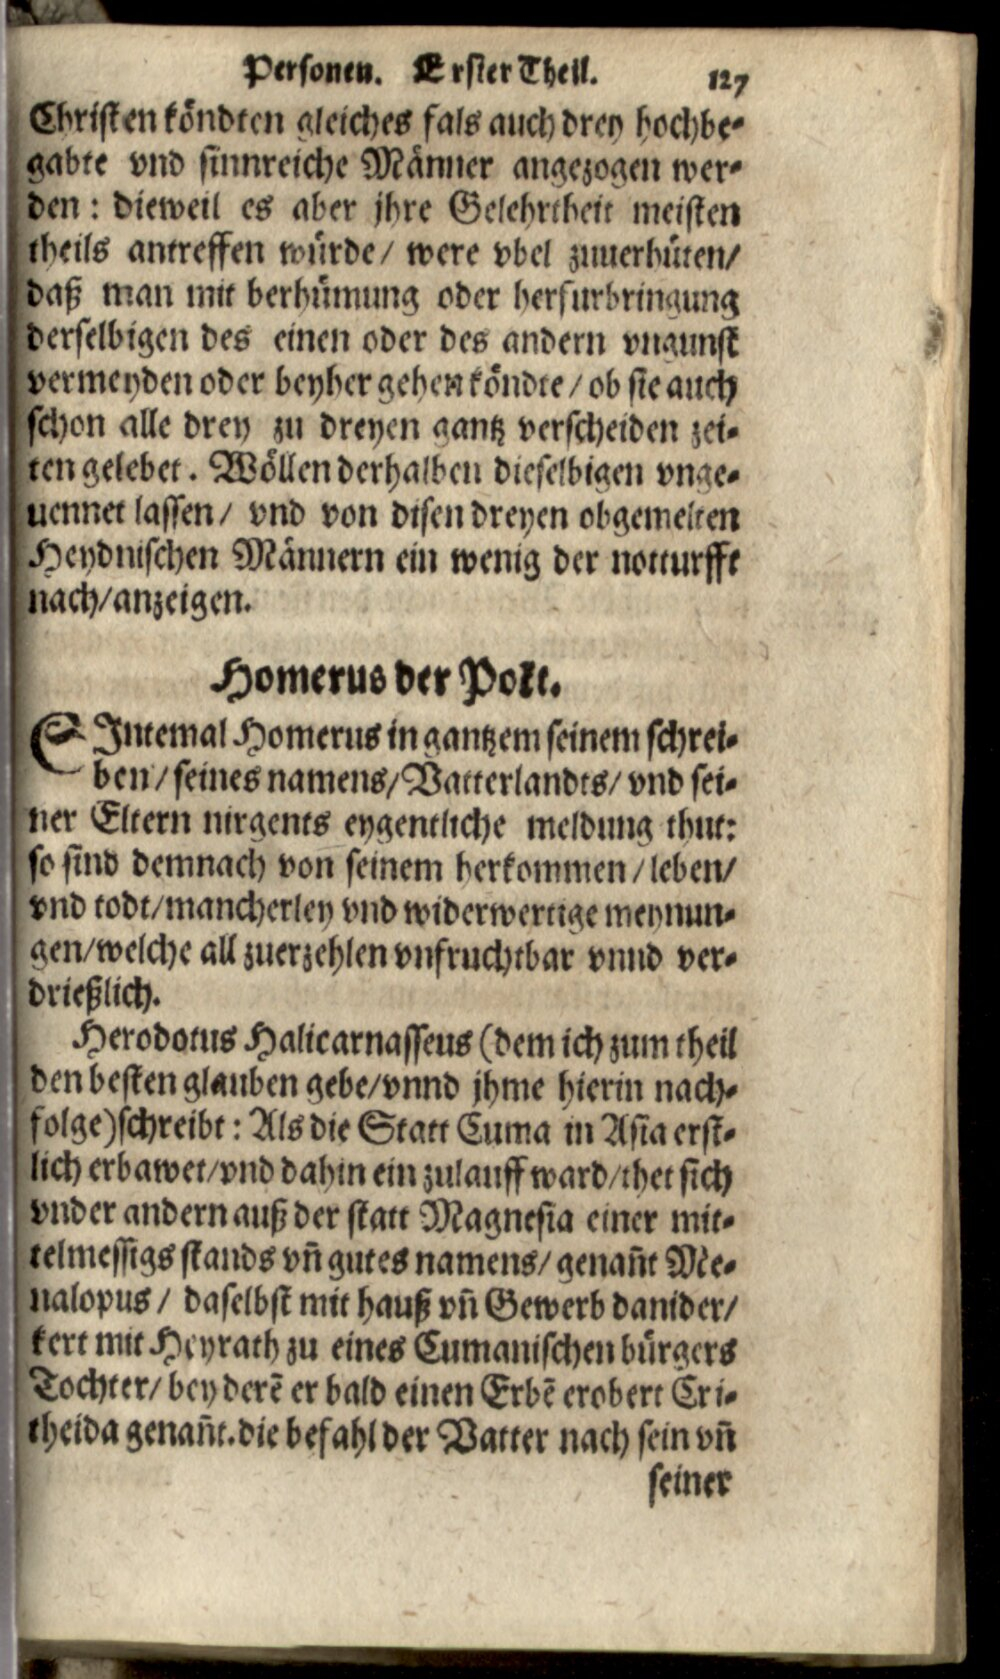 Personen. Erster Theil. 127
Christen köndten gleiches fals auch drey hochbe-
gabte vnd sinnreiche Männer angezogen wer-
den: dieweil es aber jhre Gelehrtheit meisten
theils antreffen würde/ were vbel zuuerhüten/
daß man mit berhümung oder herfurbringung
derselbigen des einen oder des andern vngunst
vermeyden oder beyher gehen köndte/ ob sie auch
schon alle drey zu dreyen gantz verscheiden zei-
ten gelebet. Wöllen derhalben dieselbigen vnge-
uennet lassen/ vnd von disen dreyen obgemelten
Heydnischen Männern ein wenig der notturfft
nach/anzeigen.
Homerus der Poët.
SIntemal Homerus in gantzem seinem schrei-
ben/ seines namens/ Vatterlandts/ vnd sei-
ner Eltern nirgents eygentliche meldung thut:
so sind demnach von seinem herkommen/ leben/
vnd todt/mancherley vnd widerwertige meynun-
gen/welche all zuerzehlen vnfruchtbar vnnd ver-
drießlich.
Herodotus Halicarnasseus (dem ich zum theil
den besten glauben gebe/vnnd jhme hierin nach-
folge)schreibt: Als die Statt Cuma in Asia erst-
lich erbawet/vnd dahin ein zulauff ward/thet sich
vnder andern auß der statt Magnesia einer mit-
telmessigs stands vn̄ gutes namens/ genan̄t Me-
nalopus/ daselbst mit hauß vn̄ Gewerb danider/
kert mit Heyrath zu eines Cumanischen bürgers
Tochter/ bey derē er bald einen Erbē erobert Cri-
theida genan̄t. die befahl der Vatter nach sein vn̄
seiner